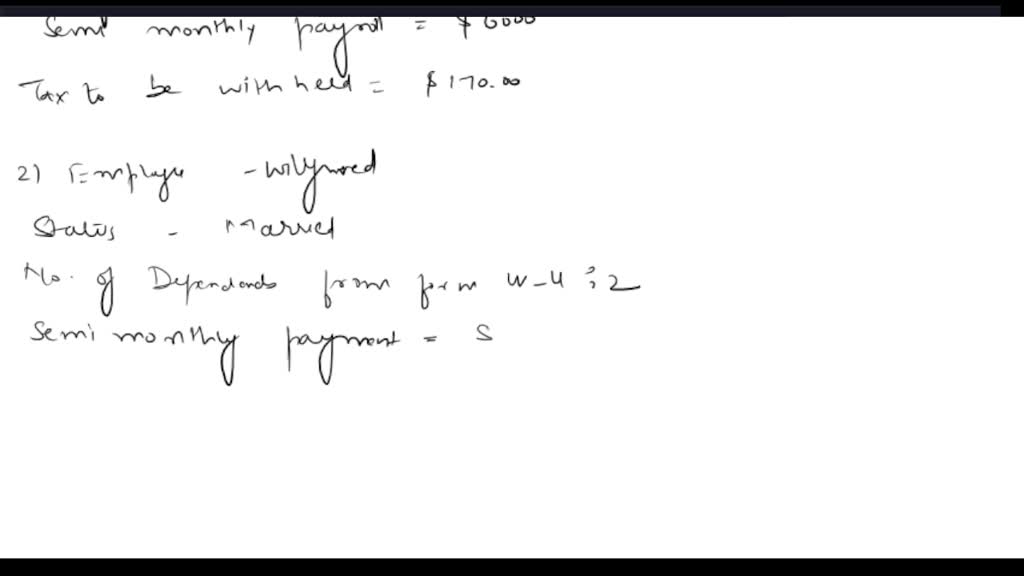 Semi monthly payroll = $ 6000
Tax to be with held = $ 170.00
2) Employee -
Status - Married
No. of Dependends from form W-4 : 2
Semi monthly payment = S